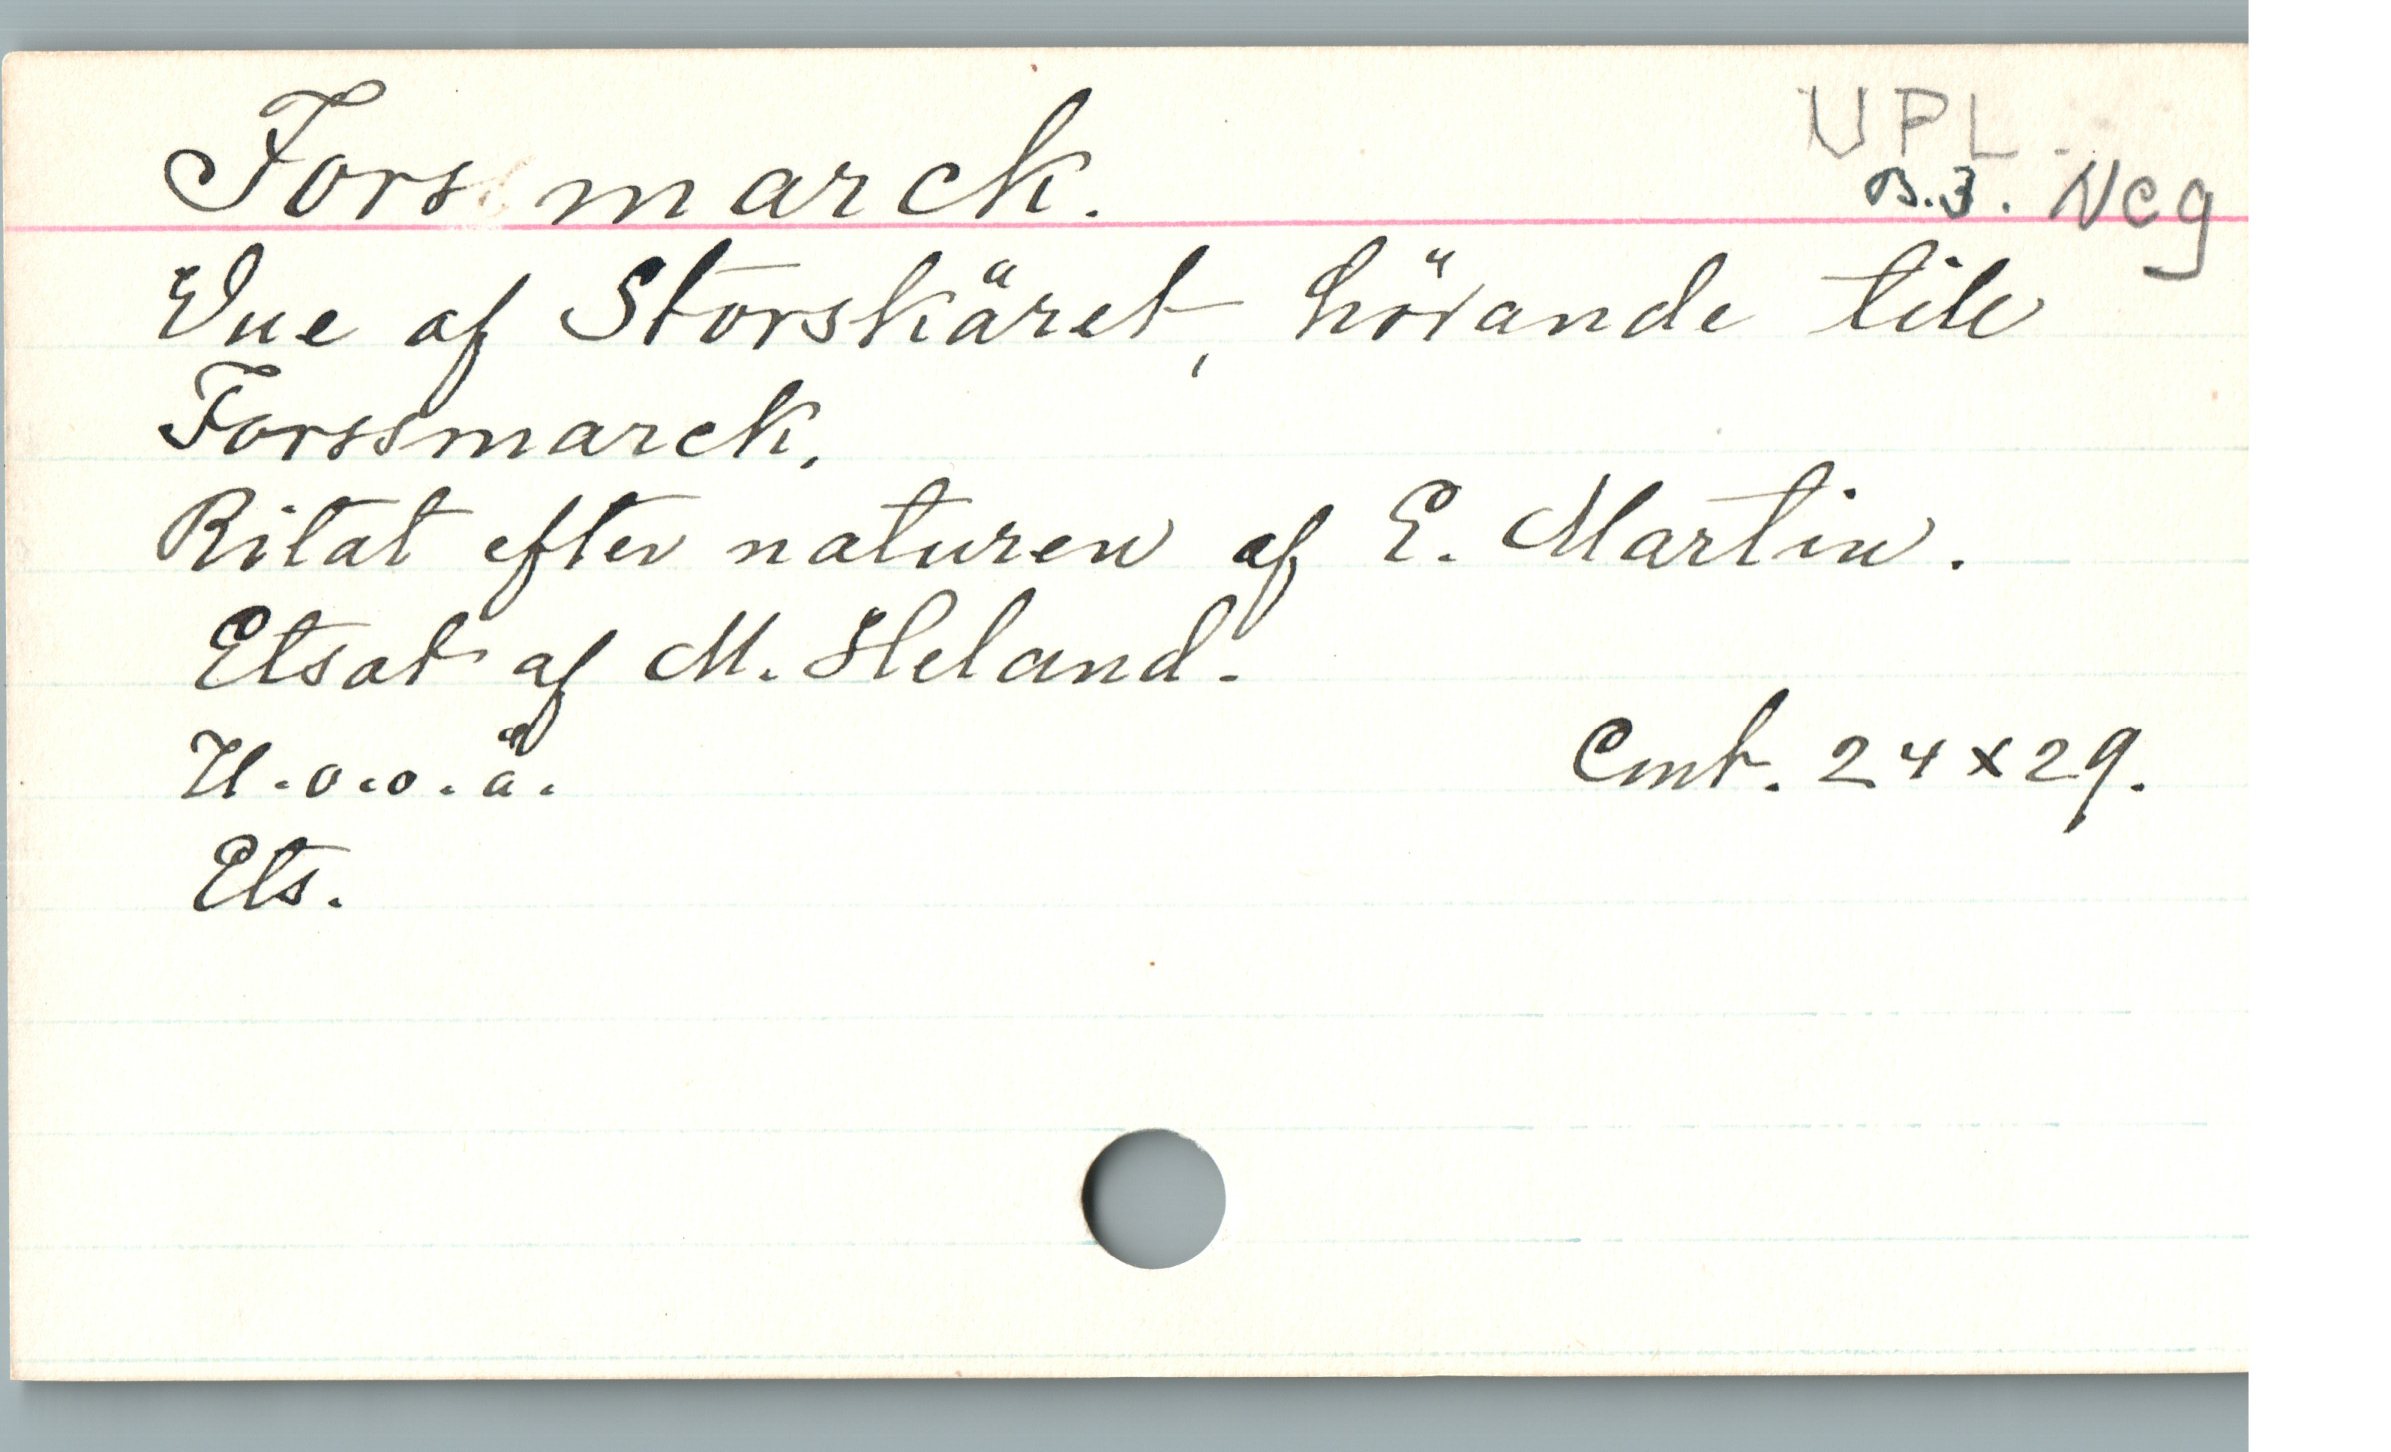 Forsmarck. UPL.
B.3. Neg
Vue af Storskäret, hörande till
Forssmarck.
Ritat efter naturen af E. Martin.
Etsat af M. Heland.
U.o.o.å. Cmt. 24x29.
Ets.